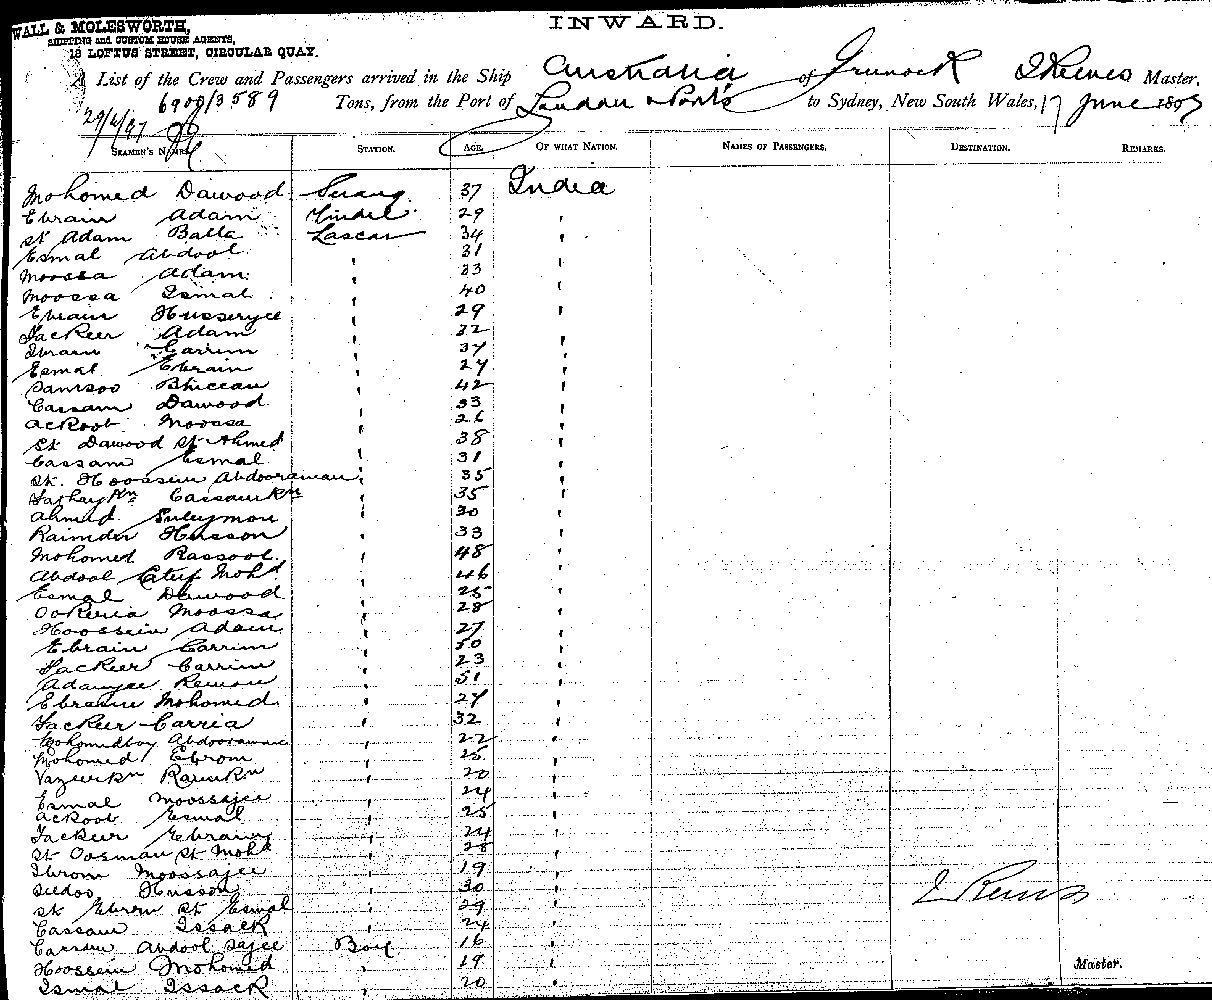 WALL & MOLESWORTH,
SHIPPING and CUSTOM HOUSE AGENTS,
18 LOFTUS STREET, CIRCULAR QUAY.
INWARD.
A List of the Crew and Passengers arrived in the Ship Australia of Greenock Master,
6900/3589 Tons, from the Port of London & Ports to Sydney, New South Wales, 17 June 1897
SEAMEN'S NAMES. STATION. AGE. OF WHAT NATION. NAMES OF PASSENGERS. DESTINATION. REMARKS.
Mohomed Dawood Serang 37 India
Ebrain Adam Tindel 29 "
Sk Adam Balla Lascar 34 "
Esmal Abdool " 31
Moossa Adam " 33 "
Moossa Esmal " 40 "
Ebrain " 29 "
Jackeer Adam " 32 "
Ibrain Carrim " 37 "
Esmal Ebrain " 27 "
Samsoo " 42 "
Cassam Dawood " 33 "
Ackoot Moossa " 26 "
Sk Dawood Sk Ahmed " 38 "
Cassam Esmal " 31 "
Sk. Hoossein Abdooraman " 35 "
" 35 "
Ahmed Suleymon " 30 "
Husson " 33 "
Mohomed Rassool " 48 "
Abdool Latief Mohd " 46 "
Esmal Dawood " 25 "
Moossa " 28 "
Hoossein Adam " 27 "
Ebrain Carrim " 50 "
Jackeer Carrim " 23 "
Adamjee " 51 "
Ebrahim Mohomed " 27 "
Jackeer Carria " 32 "
Mohomedboy Abdooraman " 22 "
Mohomed Ebrom " 25 "
" 20 "
Esmal Moossajee " 24 "
Ackoot Esmal " 25 "
Jackeer Ebrain " 24 "
Sk Oosman Sk Mohd " 28 "
Ibrom Moossajee " 19 "
Husson " 30 "
Sk Ebrom Sk Esmal " 29 "
Cassam Issack " 24 "
Carrim Abdool Sajee Boy 16 "
Hoossein Mohomed " 19 "
Master.
Esmal Issack " 20 "